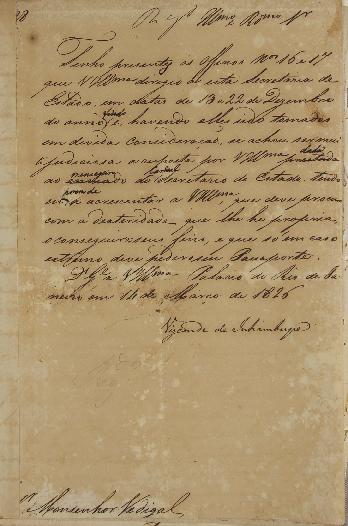 28
Illmo e Rmo Sr
Tenho presentes os Officios Nos 16 e 17
que V Illma dirigio a esta Secretaria de
Estado, em datas de 13 e 22 de Dezembro
do anno findo, e havendo elles sido tomados
em devida consideração, se achou ser mui
judiciosa a resposta por V Illma dada
ao Cardeal Secretario de Estado. Tendo
a acrescentar a V Illma, que deve procurar
com a dexteridade que lhe he propria
conseguir seus fins, e que só em caso
extremo deve pedir seu Passaporte.
Ds Ge a V Illma Palacio do Rio de Ja
neiro em 14 de Março de 1826
Visconde de Inhambupe
Sr Monsenhor Vidigal